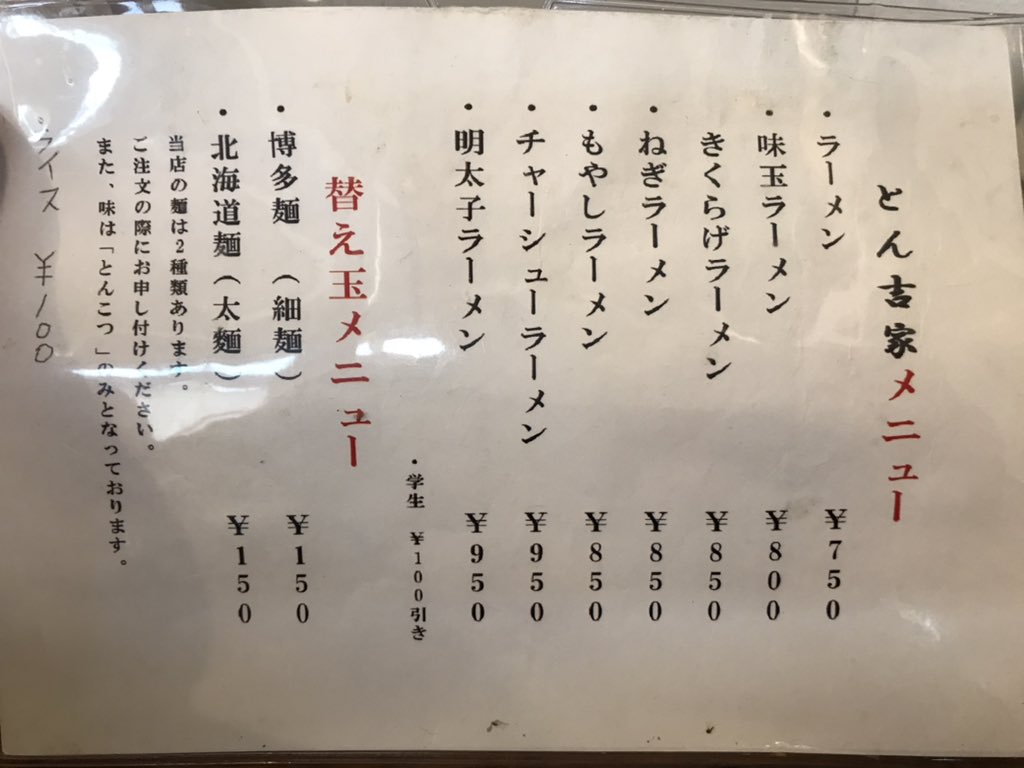 とん吉家メニュー
・ラーメン ¥750
・味玉ラーメン ¥800
きくらげラーメン ¥850
・ねぎラーメン ¥850
・もやしラーメン ¥850
・チャーシューラーメン ¥950
・明太子ラーメン ¥950
・学生 ¥100引き
替え玉メニュー
・博多麺 (細麺) ¥150
・北海道麺(太麺) ¥150
当店の麺は2種類あります。
ご注文の際にお申し付けください。
また、味は「とんこつ」のみとなっております。
・ライス ¥100